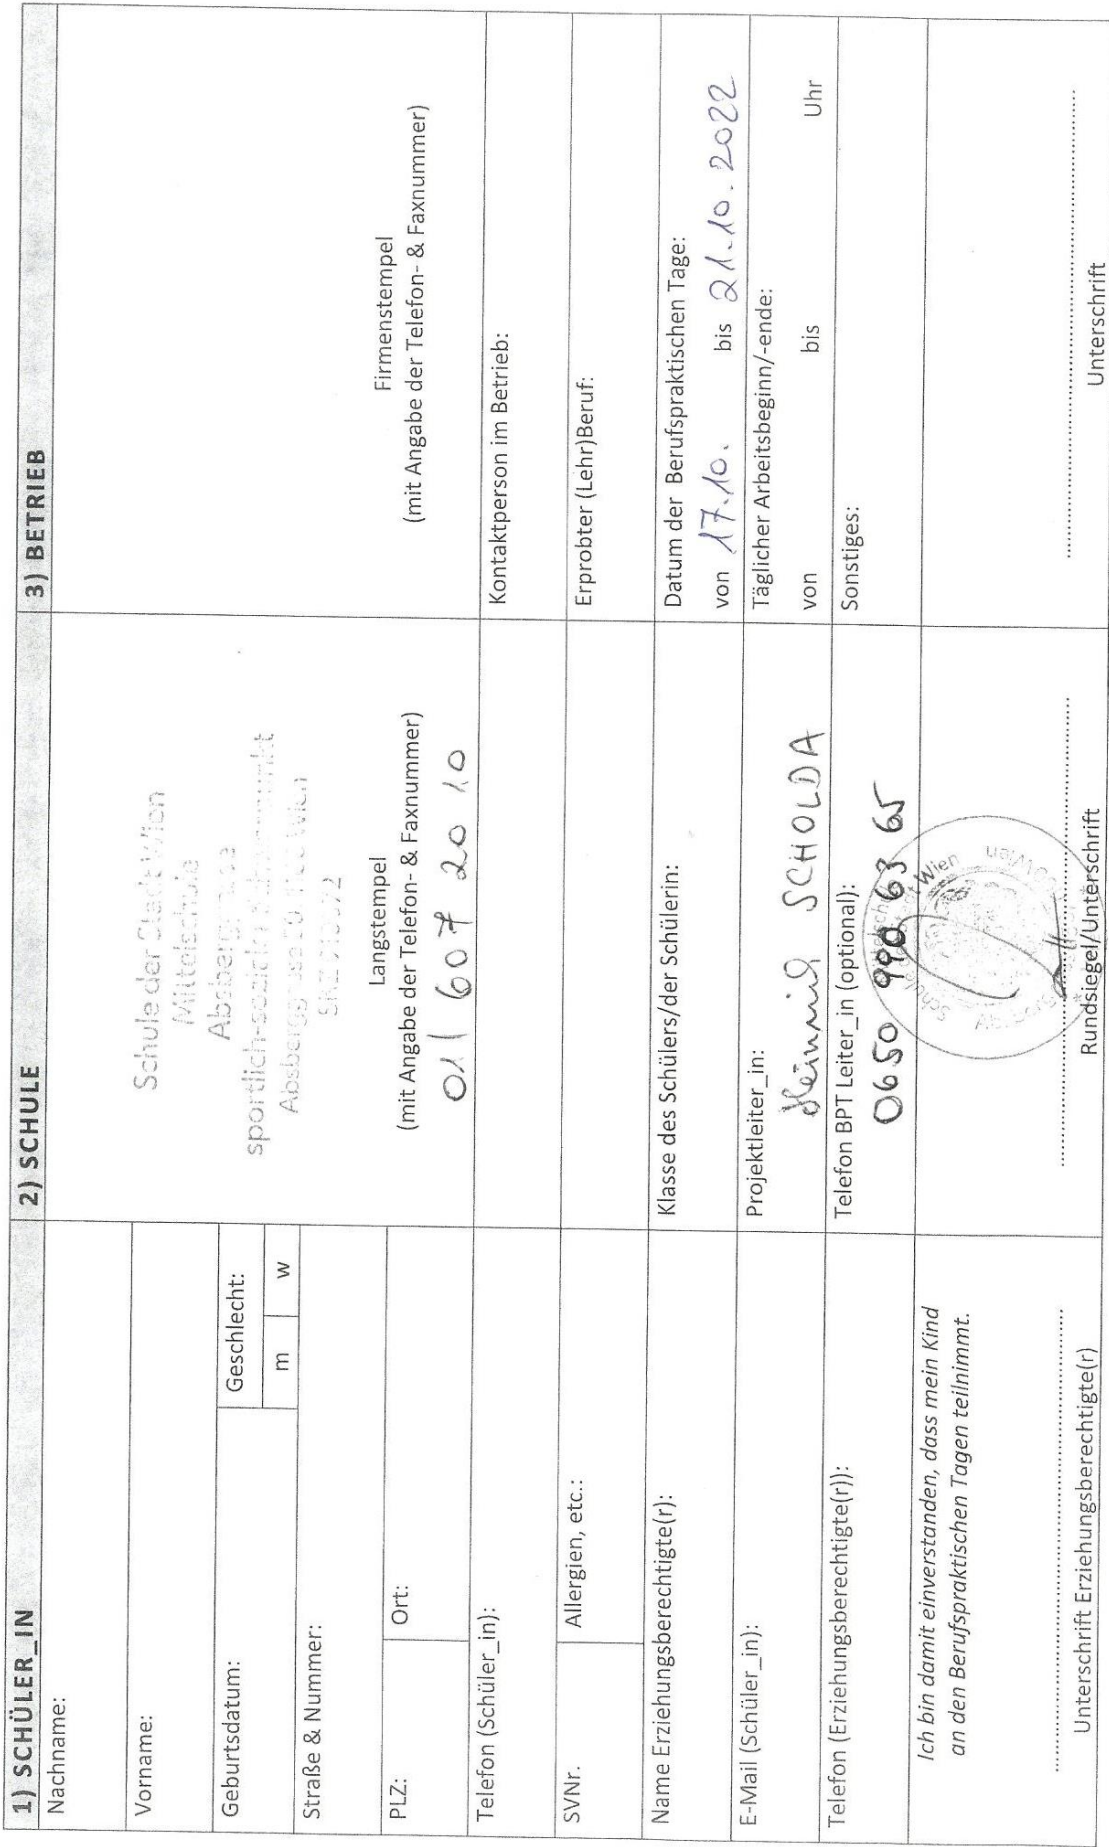 1) SCHÜLER_IN
Nachname:
Vorname:
Geburtsdatum:
Geschlecht:
m w
Straße & Nummer:
PLZ:
Ort:
Telefon (Schüler_in):
SVNr.
Allergien, etc.:
Name Erziehungsberechtigte(r):
E-Mail (Schüler_in):
Telefon (Erziehungsberechtigte(r)):
Ich bin damit einverstanden, dass mein Kind
an den Berufspraktischen Tagen teilnimmt.
Unterschrift Erziehungsberechtigte(r)
2) SCHULE
Schule der Stadt Wien
Mittelschule
Absberggasse
sportlich-sozialer Schwerpunkt
Absberggasse Wien
Langstempel
(mit Angabe der Telefon- & Faxnummer)
01/ 607 20 10
Klasse des Schülers/der Schülerin:
Projektleiter_in:
Heinrich SCHOLDA
Telefon BPT Leiter_in (optional):
0650 990 63 65
Rundsiegel/Unterschrift
3) BETRIEB
Firmenstempel
(mit Angabe der Telefon- & Faxnummer)
Kontaktperson im Betrieb:
Erprobter (Lehr)Beruf:
Datum der Berufspraktischen Tage:
von 17.10. bis 21.10.2022
Täglicher Arbeitsbeginn/-ende:
von bis Uhr
Sonstiges:
Unterschrift